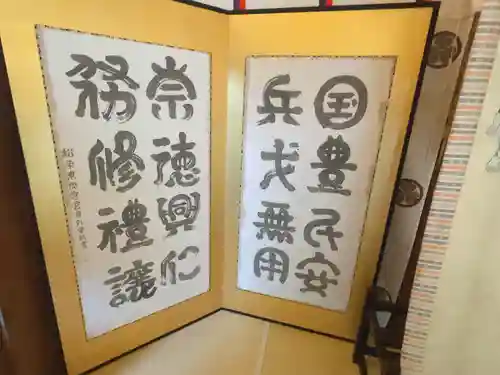 国豊民安
兵戈無用
崇徳興仁
務修禮譲